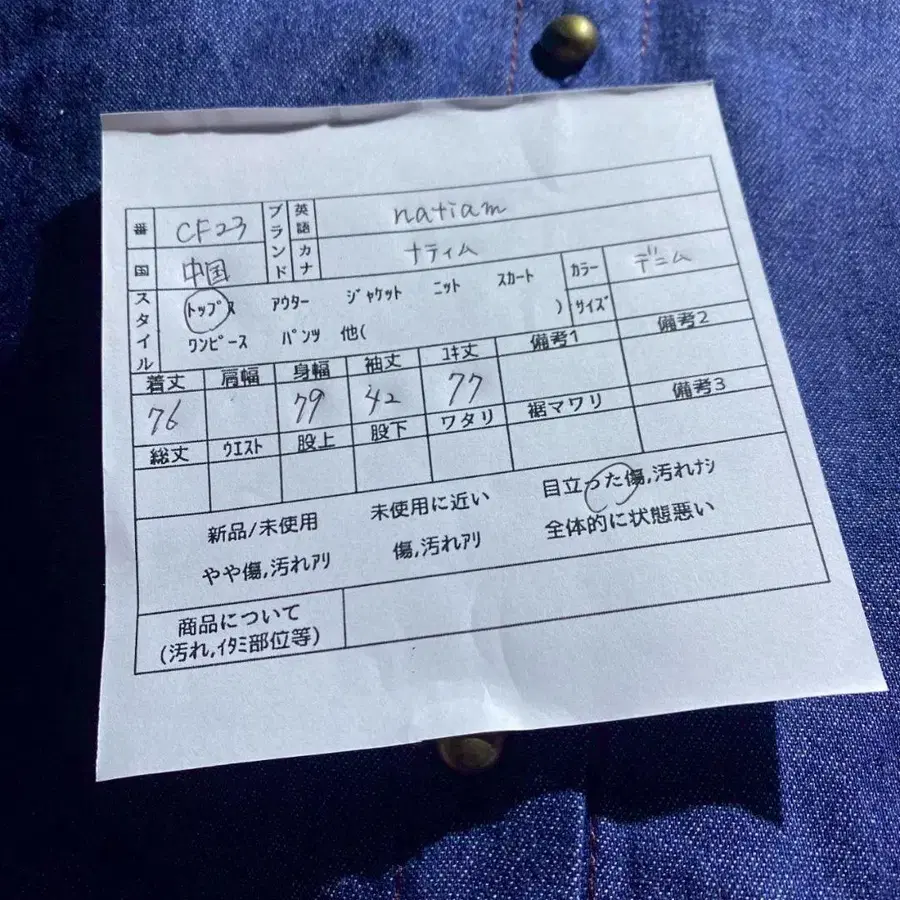 番 CF23 ブランド 英語 natiam
国 中国 カナ ナティム
スタイル トップス アウター ジャケット ニット スカート カラー デニム
ワンピース パンツ 他( ) サイズ
着丈 肩幅 身幅 袖丈 ユキ丈 備考1 備考2
76 79 42 77
総丈 ウエスト 股上 股下 ワタリ 裾マワリ 備考3
新品/未使用 未使用に近い 目立った傷,汚れナシ
やや傷,汚れアリ 傷,汚れアリ 全体的に状態悪い
商品について
(汚れ,イタミ部位等)